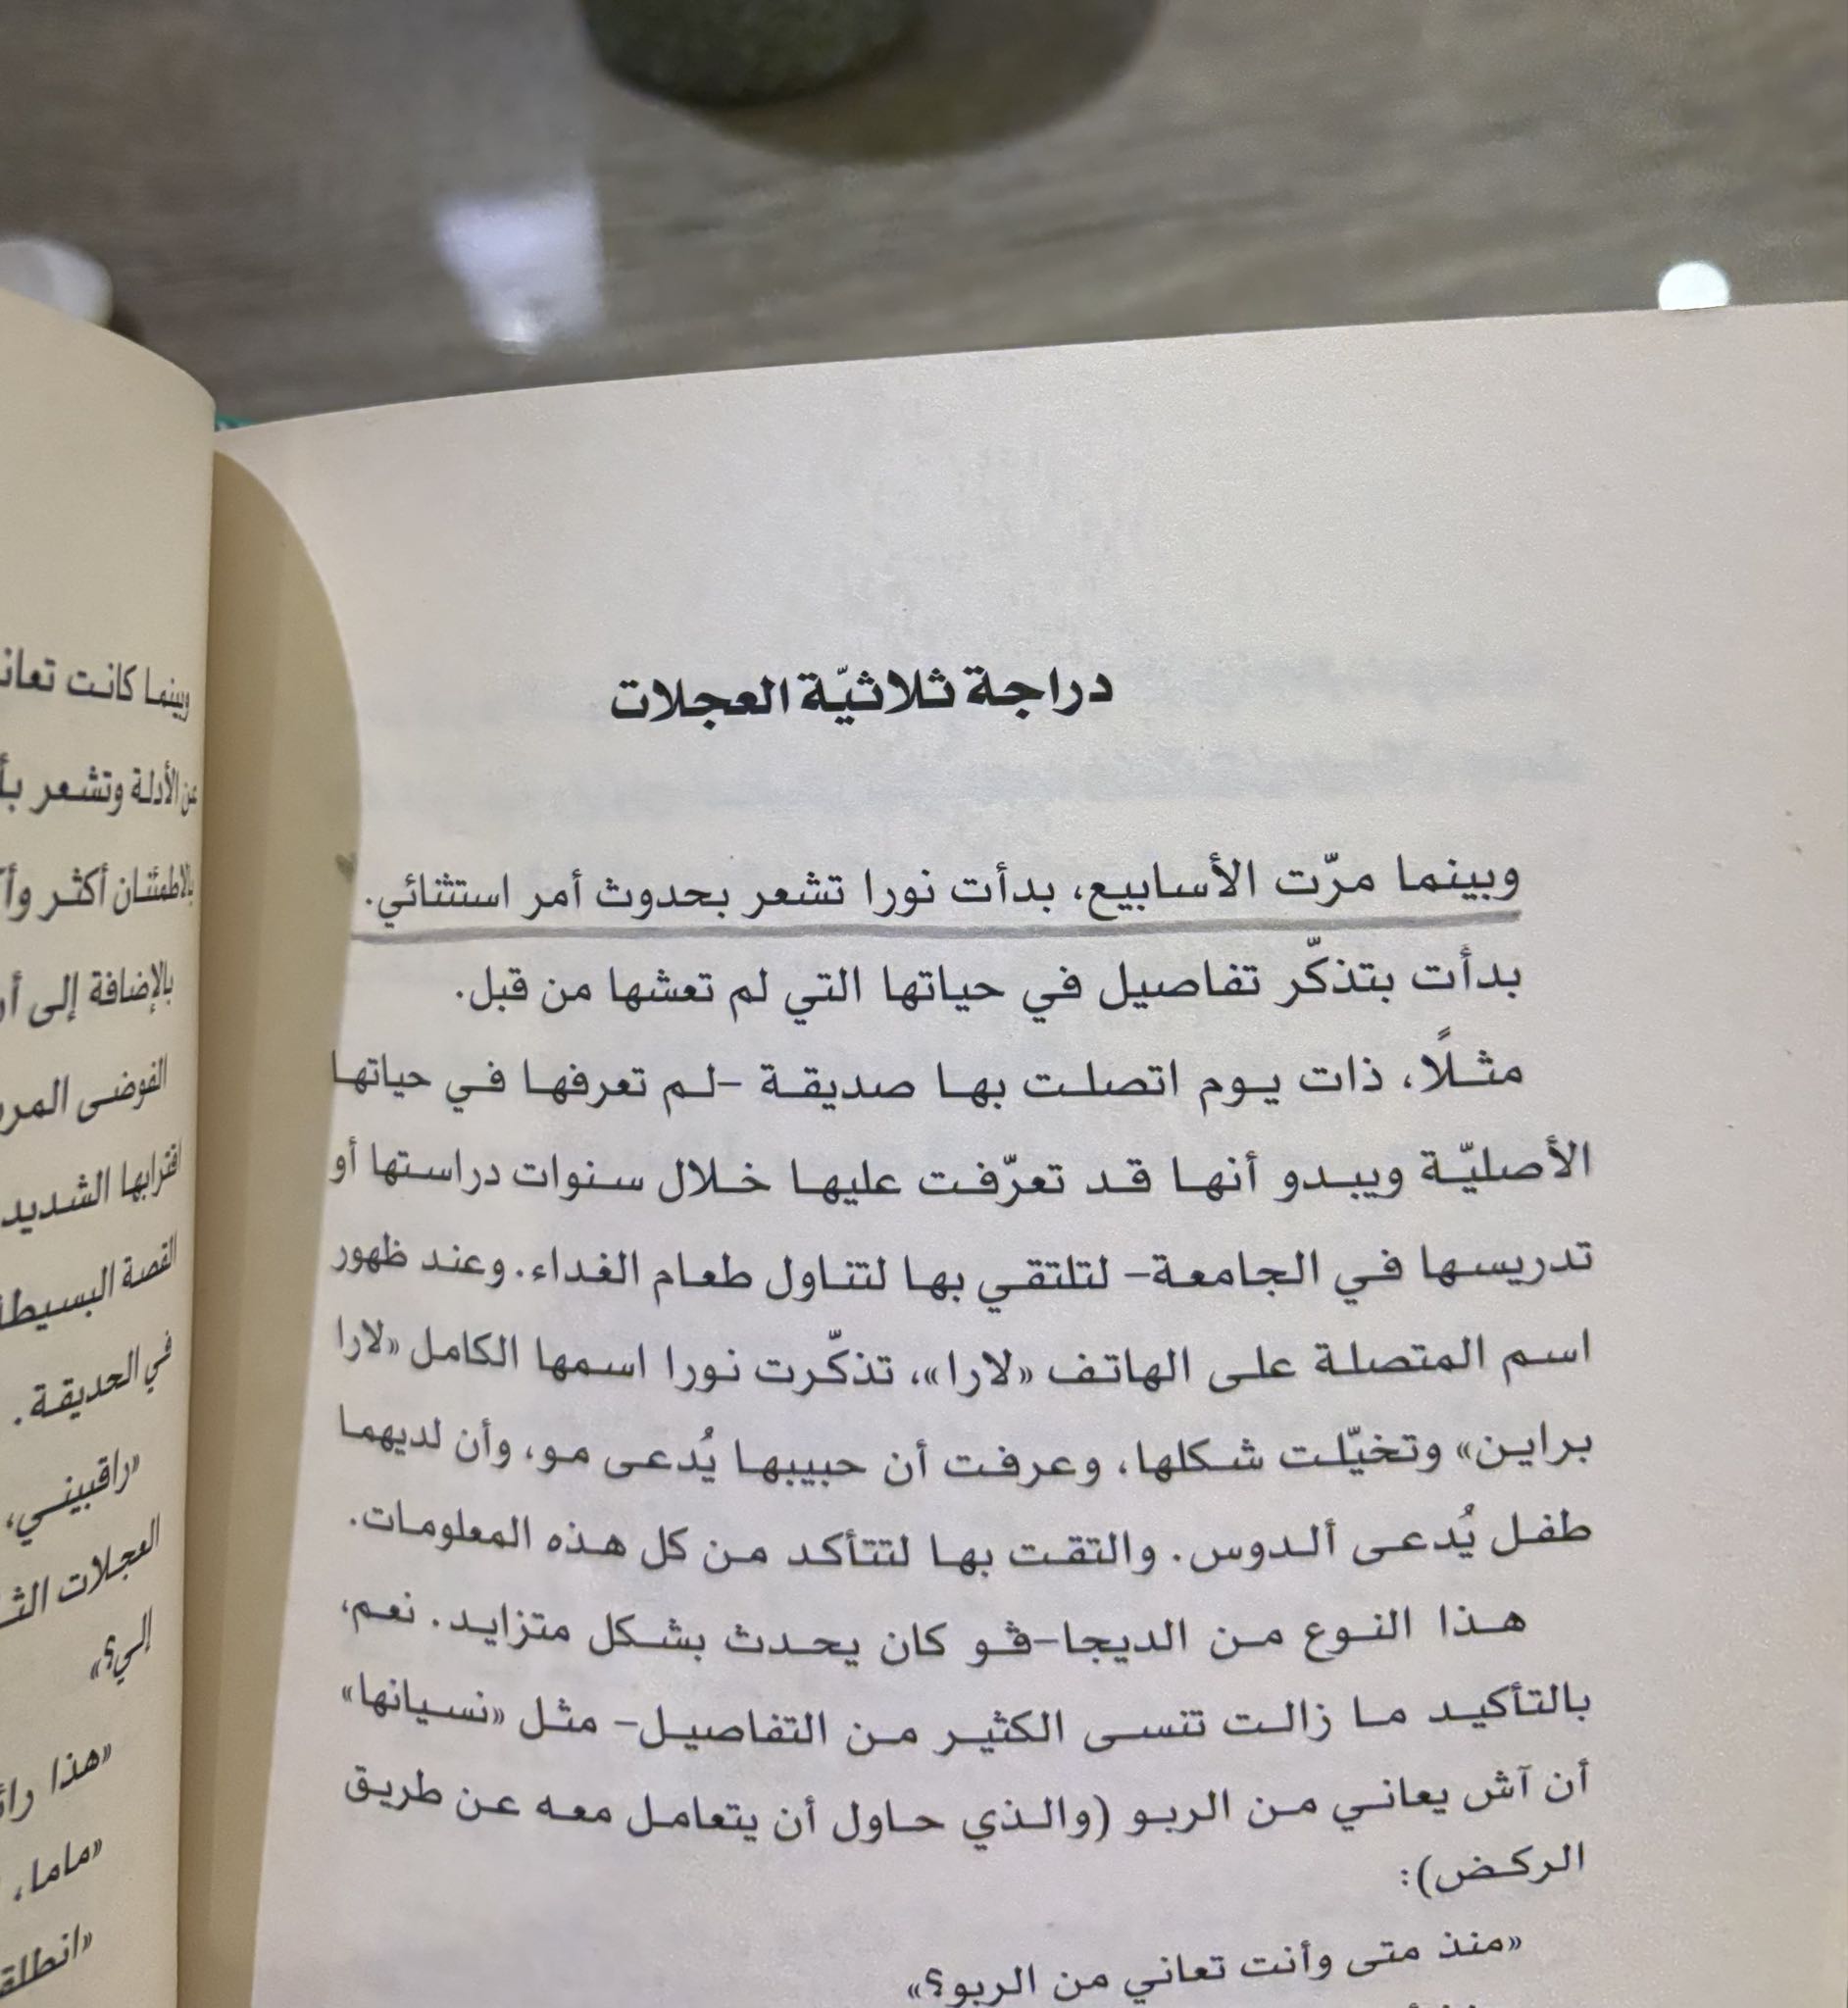 دراجة ثلاثيّة العجلات
وبينما مرّت الأسابيع، بدأت نورا تشعر بحدوث أمر استثنائي.
بدأت بتذكّر تفاصيل في حياتها التي لم تعشها من قبل.
مثلًا، ذات يوم اتصلت بها صديقة -لم تعرفها في حياتها
الأصليّة ويبدو أنها قد تعرّفت عليها خلال سنوات دراستها أو
تدريسها في الجامعة- لتلتقي بها لتناول طعام الغداء. وعند ظهور
اسم المتصلة على الهاتف «لارا»، تذكّرت نورا اسمها الكامل «لارا
براين» وتخيّلت شكلها، وعرفت أن حبيبها يُدعى مو، وأن لديهما
طفل يُدعى ألدوس. والتقت بها لتتأكد من كل هذه المعلومات.
هذا النوع من الديجا-ڤو كان يحدث بشكل متزايد. نعم،
بالتأكيد ما زالت تنسى الكثير من التفاصيل- مثل «نسيانها»
أن آش يعاني من الربو (والذي حاول أن يتعامل معه عن طريق
الركض):
«منذ متى وأنت تعاني من الربو؟»
وبينما كانت
عن الأدلة وتشعر
بالاطمئنان أكثر
بالإضافة إلى
الفوضى
اقترابها الشديد
القصة
في الحديقة.
«راقبيني،
العجلات
إلي؟»
«هذا
«ماما،